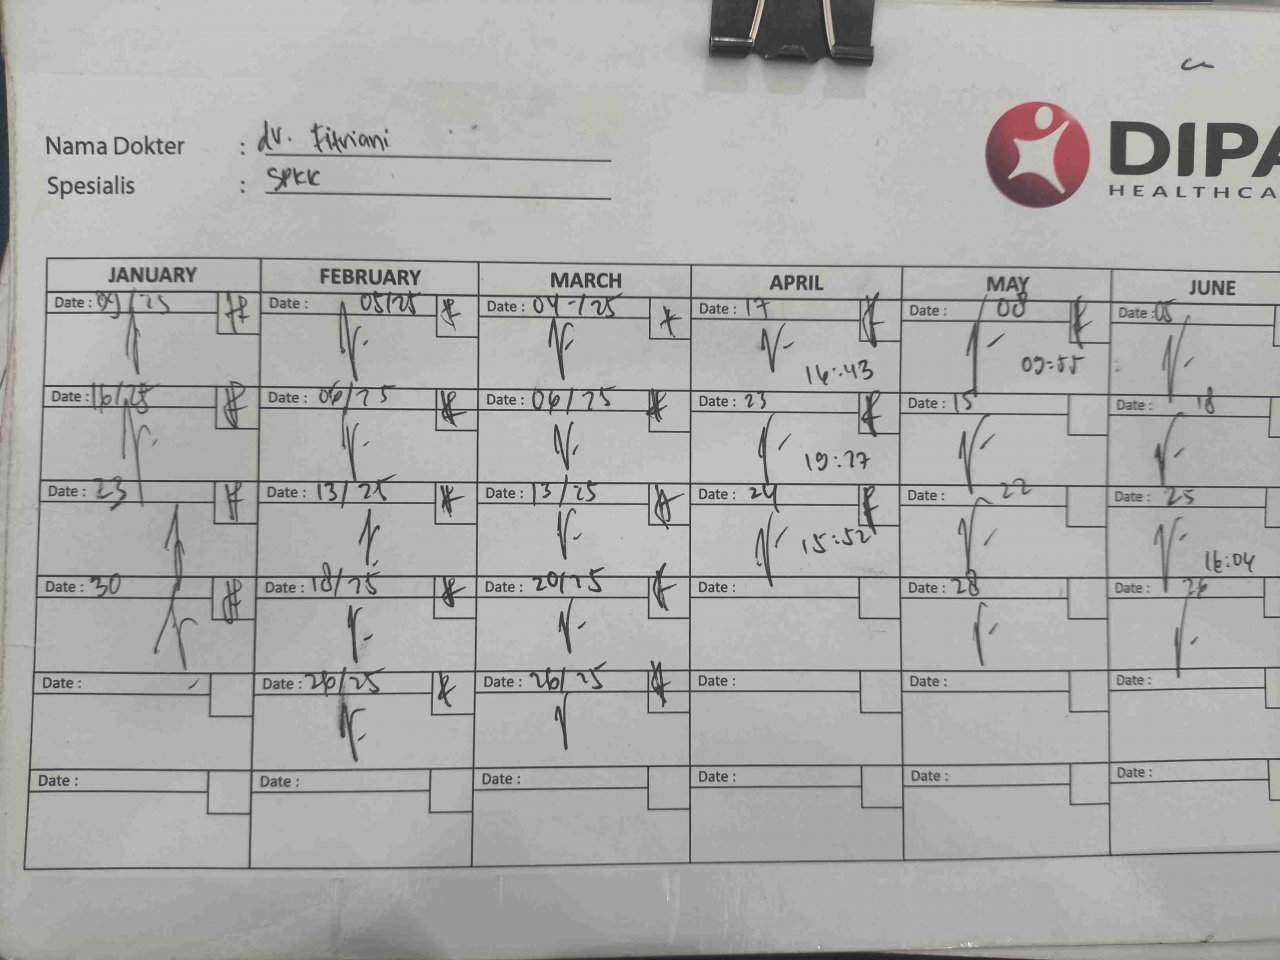 Nama Dokter : dr. Fitriani
Spesialis : SPKK
DIPA
HEALTHCA
JANUARY FEBRUARY MARCH APRIL MAY JUNE
Date : 09/25 Date : 05/25 Date : 04-/25 Date : 17 Date : 08 Date : 05
16:43 09:55
Date : 16/25 Date : 06/25 Date : 06/25 Date : 23 Date : 15 Date : 18
19:27
Date : 23 Date : 13/25 Date : 13/25 Date : 24 Date : 22 Date : 25
15:52 16:04
Date : 30 Date : 18/25 Date : 20/25 Date : Date : 28 Date : 26
Date : Date : 26/25 Date : 26/25 Date : Date : Date :
Date : Date : Date : Date : Date : Date :